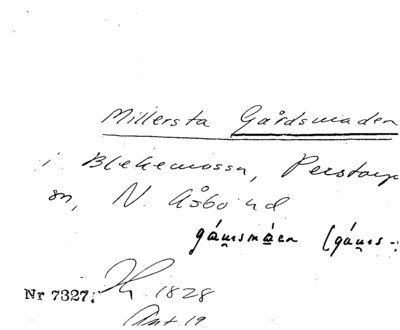 Millersta Gårdsmaden
i Blekemossa, Perstorp
sn, N. Åsbo hd
gáu̯smá̱en (gáu̯s-
Nr 7327: 1828
Ant 19